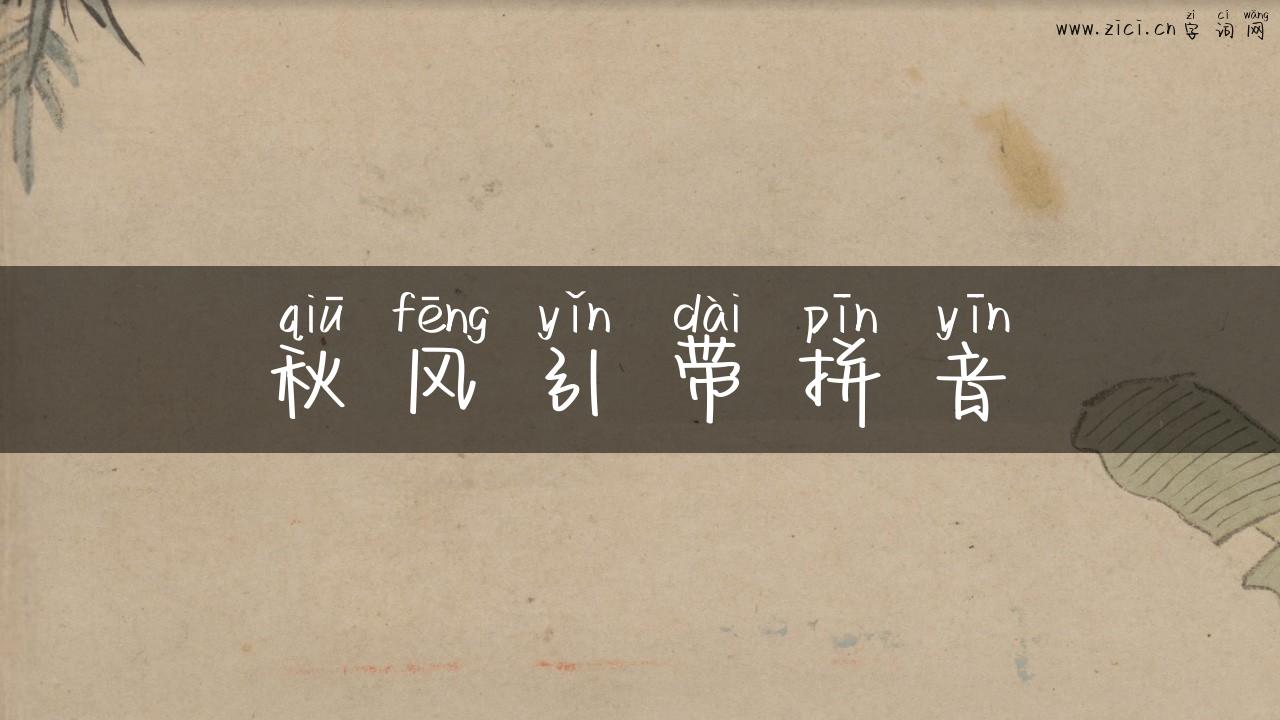 zì cí wǎng
www.zici.cn 字词网
qiū fēng yǐn dài pīn yīn
秋风引带拼音